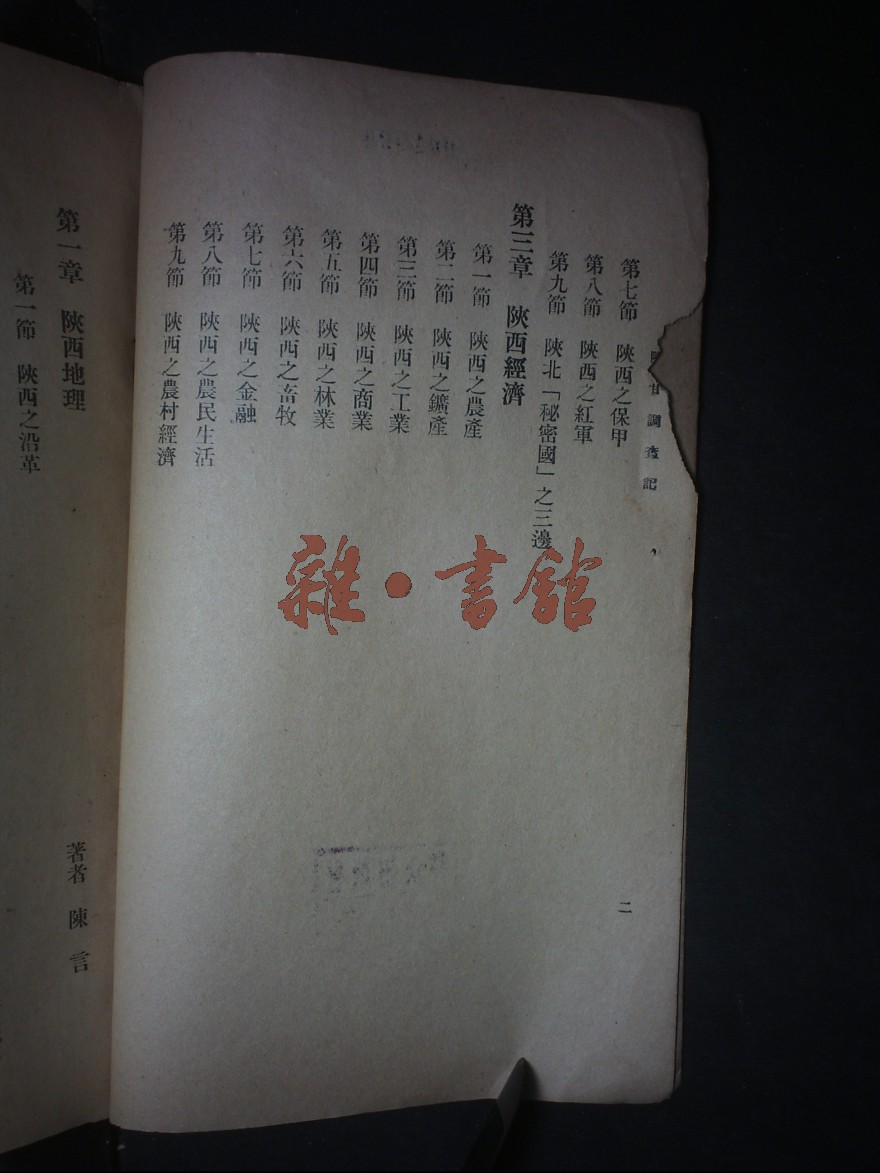 甘調查記
第七節　陝西之保甲
第八節　陝西之紅軍
第九節　陝北「秘密國」之三邊
第三章　陝西經濟
第一節　陝西之農產
第二節　陝西之鑛產
第三節　陝西之工業
第四節　陝西之商業
第五節　陝西之林業
第六節　陝西之畜牧
第七節　陝西之金融
第八節　陝西之農民生活
第九節　陝西之農村經濟
二
第一章　陝西地理
著者　陳言
第一節　陝西之沿革
雜·書館